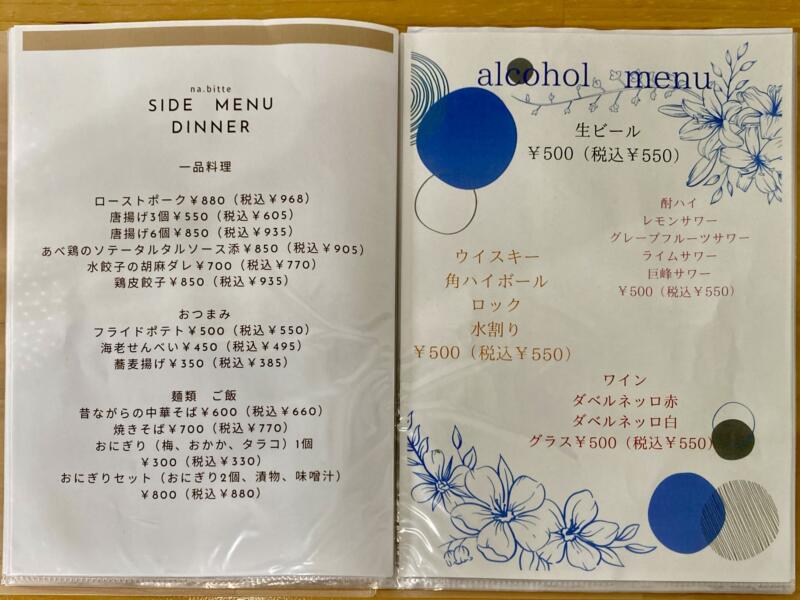 na.bitte
SIDE MENU
DINNER
一品料理
ローストポーク￥880（税込￥968）
唐揚げ3個￥550（税込￥605）
唐揚げ6個￥850（税込￥935）
あべ鶏のソテータルタルソース添￥850（税込￥905）
水餃子の胡麻ダレ￥700（税込￥770）
鶏皮餃子￥850（税込￥935）
おつまみ
フライドポテト￥500（税込￥550）
海老せんべい￥450（税込￥495）
蕎麦揚げ￥350（税込￥385）
麺類　ご飯
昔ながらの中華そば￥600（税込￥660）
焼きそば￥700（税込￥770）
おにぎり（梅、おかか、タラコ）1個
￥300（税込￥330）
おにぎりセット（おにぎり2個、漬物、味噌汁）
￥800（税込￥880）
alcohol menu
生ビール
￥500（税込￥550）
酎ハイ
レモンサワー
グレープフルーツサワー
ライムサワー
巨峰サワー
￥500（税込￥550）
ウイスキー
角ハイボール
ロック
水割り
￥500（税込￥550）
ワイン
ダベルネッロ赤
ダベルネッロ白
グラス￥500（税込￥550）